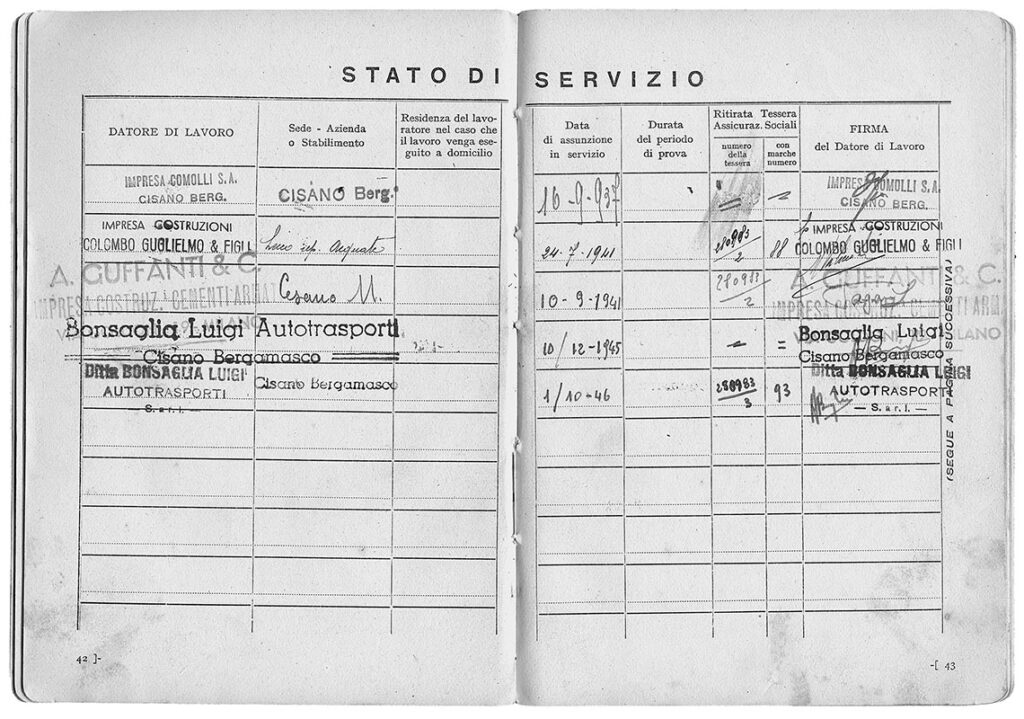 STATO DI SERVIZIO
DATORE DI LAVORO
Sede - Azienda
o Stabilimento
Residenza del lavo-
ratore nel caso che
il lavoro venga ese-
guito a domicilio
IMPRESA COMOLLI S.A.
CISANO BERG.
CISANO Berg.
IMPRESA COSTRUZIONI
COLOMBO GUGLIELMO & FIGLI
A. GUFFANTI & C.
IMPRESA COSTRUZ. CEMENTI ARMATI
Cesano M.
Bonsaglia Luigi Autotrasporti
Cisano Bergamasco
Ditta BONSAGLIA LUIGI
AUTOTRASPORTI
- S. a r. l. -
Cisano Bergamasco
42 ]-
Data
di assunzione
in servizio
Durata
del periodo
di prova
Ritirata Tessera
Assicuraz. Sociali
numero
della
tessera
con
marche
numero
FIRMA
del Datore di Lavoro
16-9-937
IMPRESA COMOLLI S.A.
CISANO BERG.
24-7-1941
280983/2
88
IMPRESA COSTRUZIONI
COLOMBO GUGLIELMO & FIGLI
10-9-1941
280983/2
A. GUFFANTI & C.
IMPRESA COSTRUZ. CEMENTI ARM
MILANO
10/12-1945
-
=
Bonsaglia Luigi
Cisano Bergamasco
1/10-46
280983/3
93
Ditta BONSAGLIA LUIGI
AUTOTRASPORTI
- S. a r. l. -
(SEGUE A PAGINA SUCCESSIVA)
-[ 43